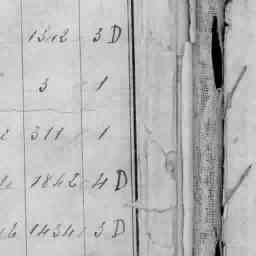 1312 3 D
3 1
311 1
1842 4 D
1434 3 D